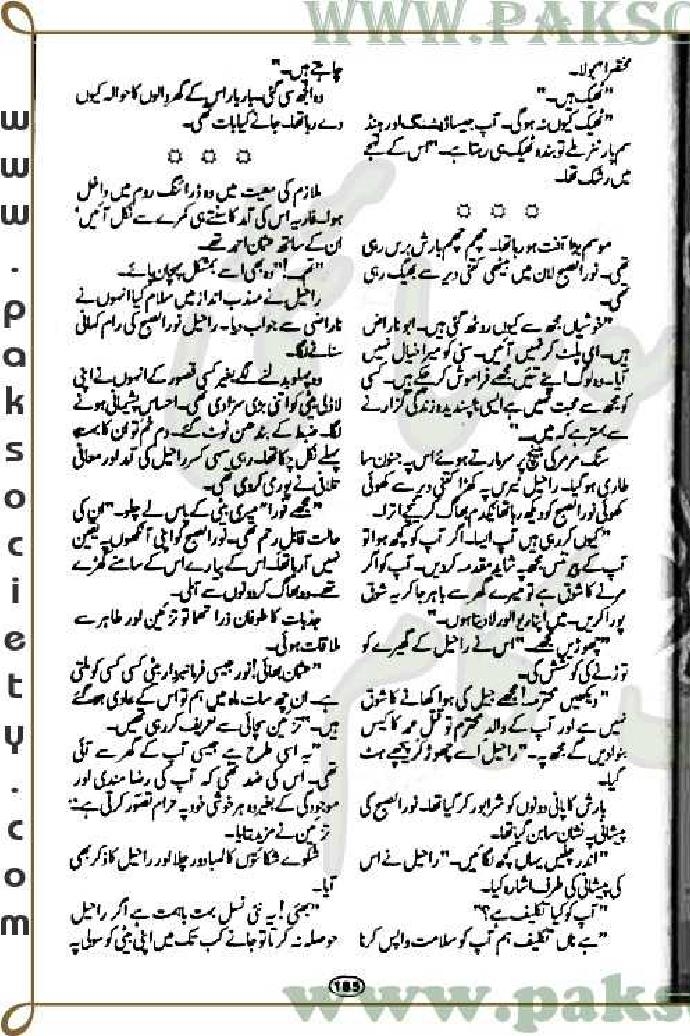 WWW.PAKSO
www.paksociety.com
مختصراً بولا۔
"ٹھیک ہیں۔"
"ٹھیک کیوں نہ ہوگی۔ آپ جیسا ڈیشنگ اور ہینڈ
سم پارٹنر ملے تو بندہ ٹھیک ہی رہتا ہے۔" اس کے لہجے
میں رشک تھا۔
موسم بڑا آفت ہو رہا تھا۔ چھم چھم بارش برس رہی
تھی۔ نور الصبح لان میں بیٹھی کتنی دیر سے بھیگ رہی
تھی۔
"خوشیاں مجھ سے کیوں روٹھ گئی ہیں۔ ابو ناراض
ہیں۔ امی پلٹ کر نہیں آئیں۔ سنی کو میرا خیال نہیں
آیا۔ وہ لوگ اپنے تئیں مجھے فراموش کر چکے ہیں۔ کسی
کو مجھ سے محبت نہیں ہے ایسی ناپسندیدہ زندگی گزارنے
سے بہتر ہے کہ میں۔"
سنگ مرمر کی بینچ پر سر مارتے ہوئے اس پہ جنون سا
طاری ہو گیا۔ راحیل ٹیرس پہ کھڑا کتنی دیر سے کھوئی
کھوئی نور الصبح کو دیکھ رہا تھا یکدم بھاگ کر نیچے اترا۔
"کیوں کر رہی ہیں آپ ایسا۔ اگر آپ کو کچھ ہوا تو
آپ کے پیرنٹس مجھ پہ شاید مقدمہ کر دیں۔ آپ کو اگر
مرنے کا شوق ہے تو میرے گھر سے باہر جا کر یہ شوق
پورا کریں۔ میں اپنا ریوالور لا دیتا ہوں۔"
"چھوڑیں مجھے۔" اس نے راحیل کے گھیرے کو
توڑنے کی کوشش کی۔
"دیکھیں محترمہ! مجھے جیل کی ہوا کھانے کا شوق
نہیں ہے اور آپ کے والد محترم تو قتل عمد کا کیس
بنوا دیں گے مجھ پہ۔" راحیل اسے چھوڑ کر پیچھے ہٹ
گیا۔
بارش کا پانی دونوں کو شرابور کر گیا تھا۔ نور الصبح کی
پیشانی پہ نشان سا بن گیا تھا۔
"اندر چلیں یہاں کچھ لگائیں۔" راحیل نے اس
کی پیشانی کی طرف اشارہ کیا۔
"آپ کو کیا تکلیف ہے؟"
"ہے ناں تکلیف ہم آپ کو سلامت واپس کرنا
چاہتے ہیں۔"
وہ الجھ سی گئی۔ بار بار اس کے گھر والوں کا حوالہ کیوں
دے رہا تھا۔ جانے کیا بات تھی۔
ملازم کی معیت میں وہ ڈرائنگ روم میں داخل
ہوا۔ فاریہ اس کی آمد کا سنتے ہی کمرے سے نکل آئیں'
ان کے ساتھ عثمان احمد تھے۔
"تم۔!" وہ بھی اسے بمشکل پہچان پائے۔
راحیل نے مہذب انداز میں سلام کیا انہوں نے
ناراضی سے جواب دیا۔ راحیل نور الصبح کی رام کہانی
سنانے لگا۔
وہ پہلو بدلنے لگے بغیر کسی قصور کے انہوں نے اپنی
لاڈلی بیٹی کو اتنی بڑی سزا دی تھی۔ احساس پشیمانی ہونے
لگا۔ ضبط کے بندھن ٹوٹ گئے۔ دم خم تو ان کا بہت
پہلے نکل چکا تھا۔ رہی سہی کسر راحیل کی آمد اور معافی
تلافی نے پوری کر دی تھی۔
"مجھے فوراً" میری بیٹی کے پاس لے چلو۔" ان کی
حالت قابل رحم تھی۔ نور الصبح کو اپنی آنکھوں پہ یقین
نہیں آ رہا تھا۔ اس کے پیارے اس کے سامنے کھڑے
تھے۔ وہ بھاگ کر دونوں سے آملی۔
جذبات کا طوفان ذرا تھما تو تزئین اور طاہر سے
ملاقات ہوئی۔
"عثمان بھائی! نور جیسی فرمانبردار بیٹی کسی کسی کو ملتی
ہے۔ ان چھ سات ماہ میں ہم تو اس کے عادی ہو گئے
ہیں۔" تزئین سچائی سے تعریف کر رہی تھیں۔
"یہ اسی طرح ہے جیسی آپ کے گھر سے آئی
تھی۔ اس کی ضد تھی کہ آپ کی رضا مندی اور
موجودگی کے بغیر وہ ہر خوشی خود پہ حرام تصور کرتی ہے۔"
تزئین نے مزید بتایا۔
شکوے شکائتوں کا لمبا دور چلا اور راحیل کا ذکر بھی
آیا۔
"بھئی! یہ نئی نسل بہت باہمت ہے اگر راحیل
حوصلہ نہ کرتا تو جانے کب تک میں اپنی بیٹی کو سولی پہ
185
www.paks